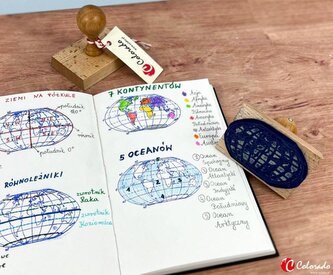 Colorado
ZIEMI NA PÓŁKULE
południk
180°
południk 0°
RÓWNOLEŻNIKI
zwrotnik
Raka
zwrotnik
Koziorożca
7 KONTYNENTÓW
Azja
Afryka
Ameryka
Północna
Ameryka
Południowa
Antarktyda
Europa
5 OCEANÓW
1 Ocean
Spokojny
2 Ocean
Atlantycki
3 Ocean
Indyjski
4 Ocean
Południowy
5 Ocean
Arktyczny
Colorado